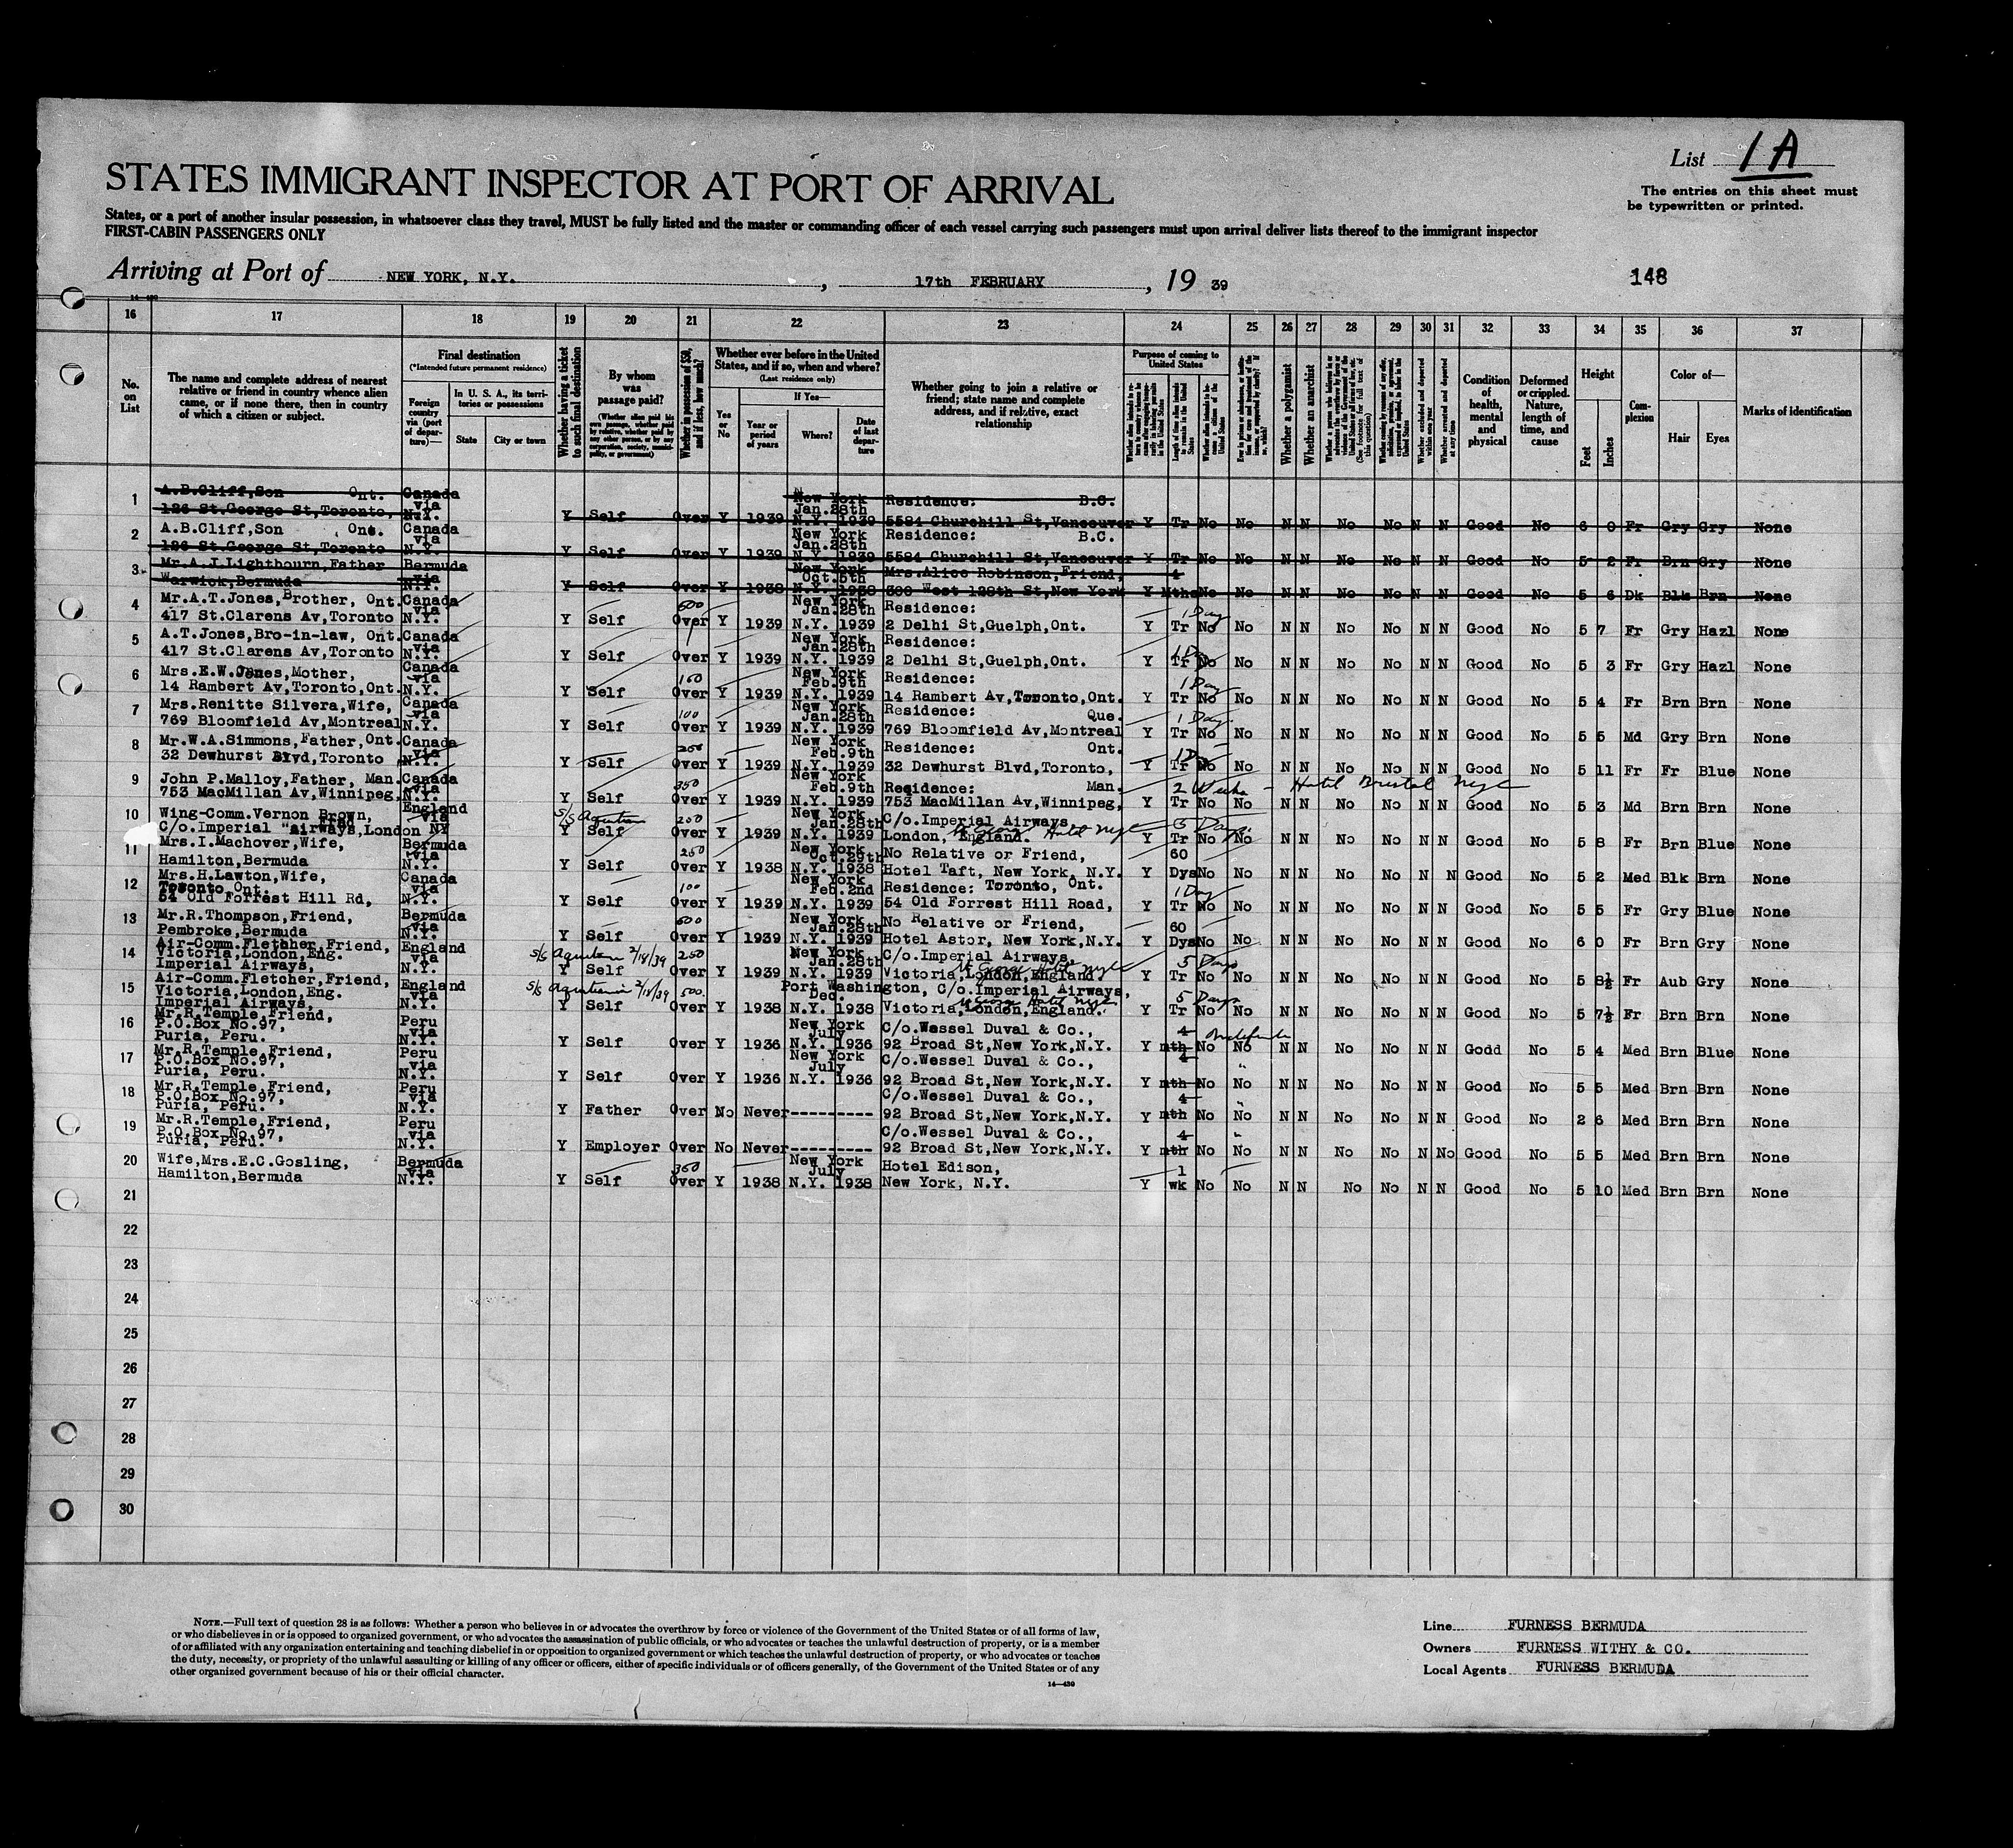 List 1A
The entries on this sheet must
be typewritten or printed.
STATES IMMIGRANT INSPECTOR AT PORT OF ARRIVAL
States, or a port of another insular possession, in whatsoever class they travel, MUST be fully listed and the master or commanding officer of each vessel carrying such passengers must upon arrival deliver lists thereof to the immigrant inspector
FIRST-CABIN PASSENGERS ONLY
Arriving at Port of NEW YORK, N.Y. , 17th FEBRUARY , 19 39
148
14-430
16 17 18 19 20 21 22 23 24 25 26 27 28 29 30 31 32 33 34 35 36 37
No. on List
The name and complete address of nearest relative or friend in country whence alien came, or if none there, then in country of which a citizen or subject.
Final destination
(*Intended future permanent residence)
Foreign country via (port of departure)—
In U. S. A., its territories or possessions
State
City or town
Whether having a ticket to such final destination
By whom was passage paid?
(Whether alien paid his own passage, whether paid by relative, whether paid by any other person, or by any corporation, society, municipality, or government)
Whether in possession of $50, and if less, how much?
Whether ever before in the United States, and if so, when and where?
(Last residence only)
If Yes—
Yes or No
Year or period of years
Where?
Date of last departure
Whether going to join a relative or friend; state name and complete address, and if relative, exact relationship
Purpose of coming to United States
Whether a polygamist
Whether an anarchist
Condition of health, mental and physical
Deformed or crippled. Nature, length of time, and cause
Height
Feet
Inches
Complexion
Color of—
Hair
Eyes
Marks of identification
1 A.B.Cliff,Son Ont. Canada New York Residence: B.C.
126 St.George St,Toronto, via N.Y. Y Self Over Y 1939 N.Y. Jan.28th 1939 5584 Churchill St,Vancouver Y Tr No No N N No No N N Good No 6 0 Fr Gry Gry None
2 A.B.Cliff,Son Ont. Canada New York Residence: B.C.
126 St.George St,Toronto via N.Y. Y Self Over Y 1939 N.Y. Jan.28th 1939 5584 Churchill St,Vancouver Y Tr No No N N No No N N Good No 5 2 Fr Brn Gry None
3 Mr.A.J.Lightbourn,Father Bermuda New York Mrs.Alice Robinson,Friend, 4
Warwick,Bermuda via N.Y. Y Self Over Y 1938 N.Y. Oct.5th 1938 300 West 128th St,New York Y Mths No No N N No No N N Good No 5 6 Dk Blk Brn None
4 Mr.A.T.Jones,Brother, Ont. Canada 600 New York Residence: 1 Day
417 St.Clarens Av,Toronto via N.Y. Y Self Over Y 1939 N.Y. Jan.28th 1939 2 Delhi St,Guelph,Ont. Y Tr No No N N No No N N Good No 5 7 Fr Gry Hazl None
5 A.T.Jones,Bro-in-law, Ont. Canada New York Residence: 1 Day
417 St.Clarens Av,Toronto via N.Y. Y Self Over Y 1939 N.Y. Jan.28th 1939 2 Delhi St,Guelph,Ont. Y Tr No No N N No No N N Good No 5 3 Fr Gry Hazl None
6 Mrs.E.W.Jones,Mother, Canada 150 New York Residence: 1 Day
14 Rambert Av,Toronto,Ont. via N.Y. Y Self Over Y 1939 N.Y. Feb.9th 1939 14 Rambert Av,Toronto,Ont. Y Tr No No N N No No N N Good No 5 4 Fr Brn Brn None
7 Mrs.Renitte Silvera,Wife, Canada 100 New York Residence: Que. 1 Day
769 Bloomfield Av,Montreal via N.Y. Y Self Over Y 1939 N.Y. Jan.28th 1939 769 Bloomfield Av,Montreal Y Tr No No N N No No N N Good No 5 5 Md Gry Brn None
8 Mr.W.A.Simmons,Father,Ont. Canada 200 New York Residence: Ont. 1 Day
32 Dewhurst Blvd,Toronto via N.Y. Y Self Over Y 1939 N.Y. Feb.9th 1939 32 Dewhurst Blvd,Toronto, Y Tr No No N N No No N N Good No 5 11 Fr Fr Blue None
9 John P.Malloy,Father, Man. Canada 350 New York Residence: Man. 2 Weeks - Hotel Bristol NYC
753 MacMillan Av,Winnipeg, via N.Y. Y Self Over Y 1939 N.Y. Feb.9th 1939 753 MacMillan Av,Winnipeg, Y Tr No No N N No No N N Good No 5 3 Md Brn Brn None
10 Wing-Comm.Vernon Brown, England S/S Aquitania 200 New York C/o.Imperial Airways, St George Hotel NYC 5 Days
C/o.Imperial Airways,London via NY Y Self Over Y 1939 N.Y. Jan.28th 1939 London, England. Y Tr No No N N No No N N Good No 5 8 Fr Brn Blue None
11 Mrs.I.Machover,Wife, Bermuda 250 New York No Relative or Friend, 60
Hamilton,Bermuda via N.Y. Y Self Over Y 1938 N.Y. Oct.29th 1938 Hotel Taft, New York, N.Y. Y Dys No No N N No No N N Good No 5 2 Med Blk Brn None
12 Mrs.H.Lawton,Wife, Canada 100 New York Residence: Toronto, Ont. 1 Day
Toronto Ont.
54 Old Forrest Hill Rd, via N.Y. Y Self Over Y 1939 N.Y. Feb.2nd 1939 54 Old Forrest Hill Road, Y Tr No No N N No No N N Good No 5 5 Fr Gry Blue None
13 Mr.R.Thompson,Friend, Bermuda 600 New York No Relative or Friend, 60
Pembroke,Bermuda via N.Y. Y Self Over Y 1939 N.Y. Jan.28th 1939 Hotel Astor, New York,N.Y. Y Dys No No N N No No N N Good No 6 0 Fr Brn Gry None
14 Air-Comm.Fletcher,Friend, England S/S Aquitania 2/18/39 250 New York C/o.Imperial Airways, St George Hotel NYC 5 Days
Victoria,London,Eng.
Imperial Airways, via N.Y. Y Self Over Y 1939 N.Y. Jan.28th 1939 Victoria,London,England Y Tr No No N N No No N N Good No 5 8½ Fr Aub Gry None
15 Air-Comm.Fletcher,Friend, England S/S Aquitania 2/18/39 500 Port Washington, C/o.Imperial Airways, St George Hotel NYC 5 Days
Victoria,London,Eng.
Imperial Airways, via N.Y. Y Self Over Y 1938 N.Y. Dec. 1938 Victoria,London,England. Y Tr No No N N No No N N Good No 5 7½ Fr Brn Brn None
16 Mr.R.Temple,Friend, Peru New York C/o.Wessel Duval & Co., 4 Indefinite
P.O.Box No.97,
Puria, Peru. via N.Y. Y Self Over Y 1936 N.Y. July 1936 92 Broad St,New York,N.Y. Y mth No No N N No No N N Godd No 5 4 Med Brn Blue None
17 Mr.R.Temple,Friend, Peru New York C/o.Wessel Duval & Co., 4 "
P.O.Box No.97,
Puria, Peru. via N.Y. Y Self Over Y 1936 N.Y. July 1936 92 Broad St,New York,N.Y. Y mth No No N N No No N N Good No 5 5 Med Brn Brn None
18 Mr.R.Temple,Friend, Peru C/o.Wessel Duval & Co., 4 "
P.O.Box No.97,
Puria, Peru. via N.Y. Y Father Over No Never--------- 92 Broad St,New York,N.Y. Y mth No No N N No No N N Good No 2 6 Med Brn Brn None
19 Mr.R.Temple,Friend, Peru C/o.Wessel Duval & Co., 4 "
P.O.Box No.97,
Puria, Peru. via N.Y. Y Employer Over No Never--------- 92 Broad St,New York,N.Y. Y mth No No N N No No N No Good No 5 5 Med Brn Brn None
20 Wife,Mrs.E.C.Gosling, Bermuda 350 New York Hotel Edison, 1
Hamilton,Bermuda via N.Y. Y Self Over Y 1938 N.Y. July 1938 New York, N.Y. Y wk No No N N No No N N Good No 5 10 Med Brn Brn None
21
22
23
24
25
26
27
28
29
30
NOTE.—Full text of question 28 is as follows: Whether a person who believes in or advocates the overthrow by force or violence of the Government of the United States or of all forms of law,
or who disbelieves in or is opposed to organized government, or who advocates the assassination of public officials, or who advocates or teaches the unlawful destruction of property, or is a member
of or affiliated with any organization entertaining and teaching disbelief in or opposition to organized government or which teaches the unlawful destruction of property, or who advocates or teaches
the duty, necessity, or propriety of the unlawful assaulting or killing of any officer or officers, either of specific individuals or of officers generally, of the Government of the United States or of any
other organized government because of his or their official character.
14—430
Line FURNESS BERMUDA
Owners FURNESS WITHY & CO.
Local Agents FURNESS BERMUDA